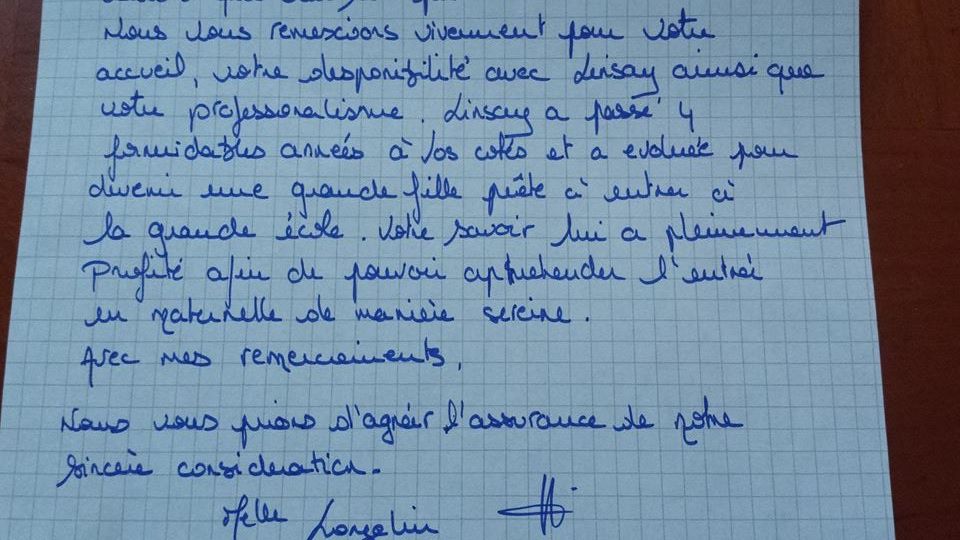 Nous vous remercions vivement pour votre
accueil, votre disponibilité avec Linsay ainsi que
votre professionalisme. Linsay a passé 4
formidables années à vos cotés et a evoluée pour
divenir une grande fille prête à entrer à
la grande école. Votre savoir lui a pleinement
Profité afin de pouvoir apprehender l'entrée
en maternelle de manière sereine.
Avec mes remerciements,
Nous vous prions d'agréér l'assurance de notre
Sincère consideration.
Melle